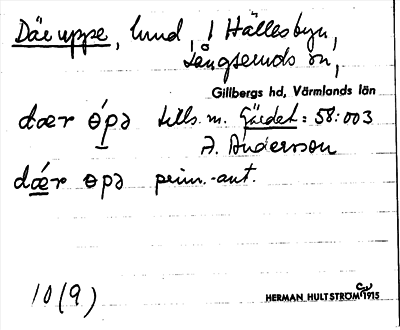 Där uppe, lund, i Hällesbyn,
Långseruds sn,
Gillbergs hd, Värmlands län
dær ɵ́pə tills. m. Gärdet: 58:003
A. Anderson
dǽr ɵpə prim.-ant.
10(9) HERMAN HULTSTRÖM 1915